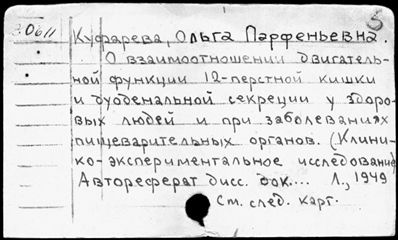 5
30611
Куфарева, Ольга Парфеньевна.
О взаимоотношении двигатель-
ной функции 12-перстной кишки
и дуоденальной секреции у здоро-
вых людей и при заболеваниях
пищеварительных органов. (Клини-
ко-экспериментальное исследование
Автореферат дисс. док.... Л., 1949
См. след. карт.